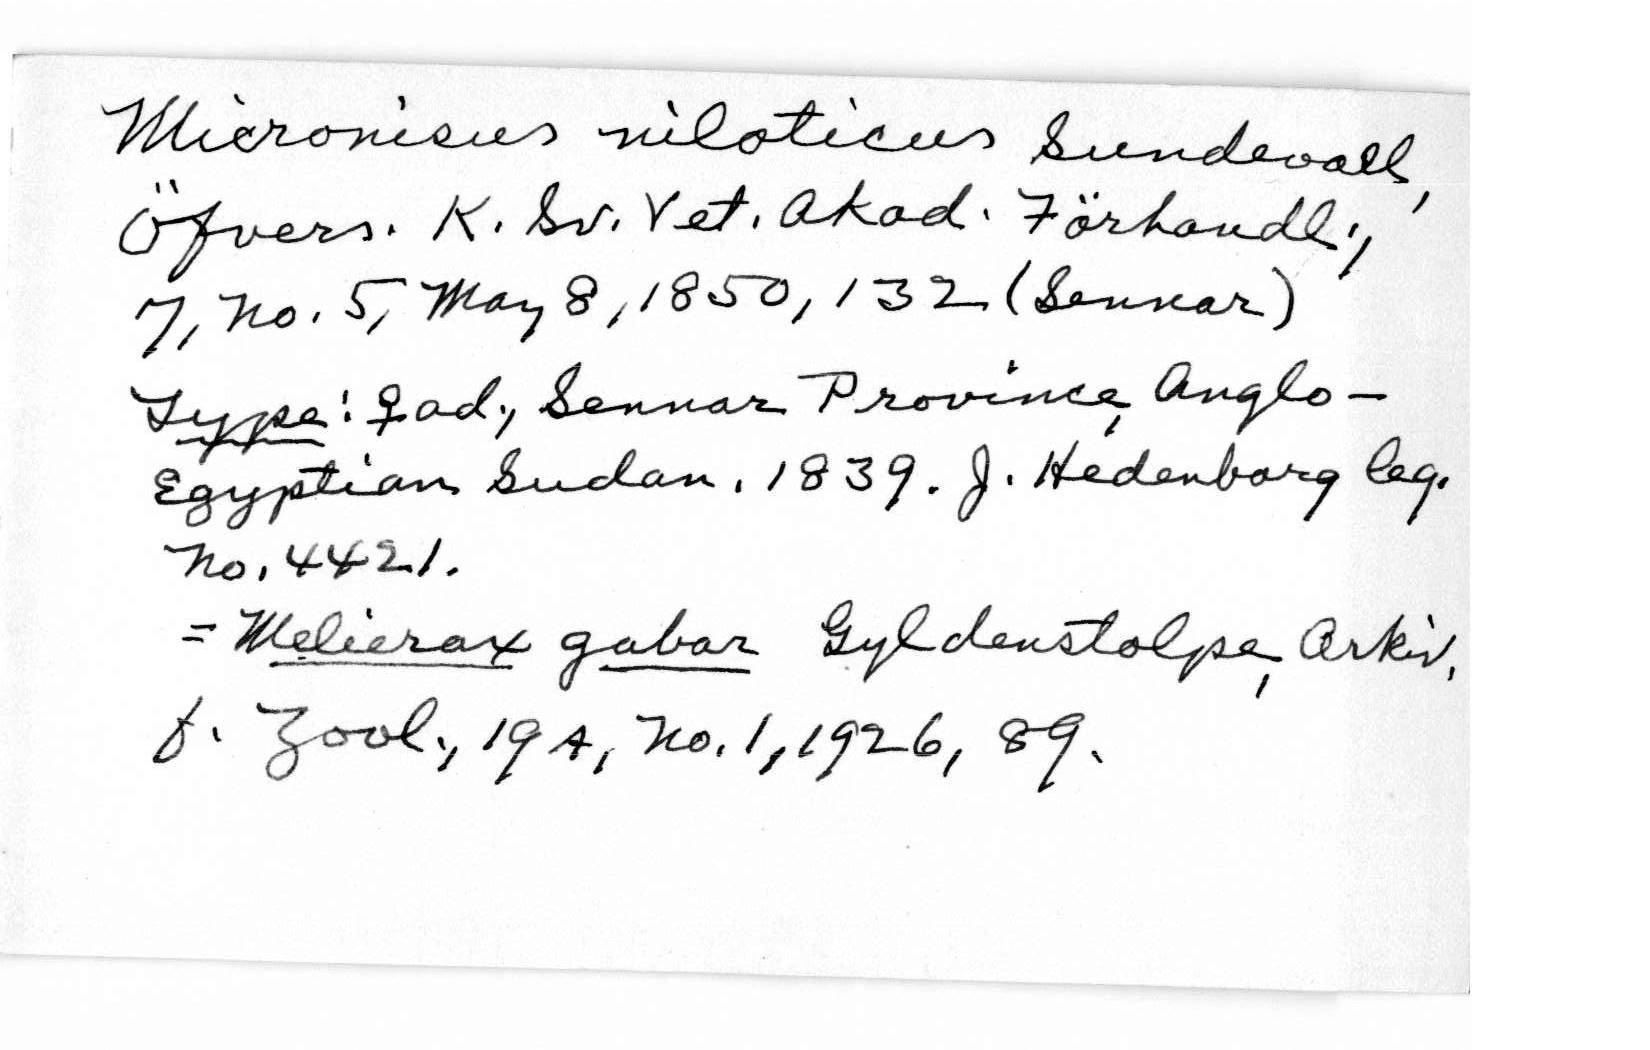 Micronisus niloticus Sundevall,
Öfvers. K. Sv. Vet. Akad. Förhandl.,
7, No. 5, May 8, 1850, 132 (Sennar)
Type: ♀ ad., Sennar Province, Anglo-
Egyptian Sudan. 1839. J. Hedenborg leg.
No. 4421.
= Melierax gabar Gyldenstolpe, Arkiv.
f. Zool., 19A, No. 1, 1926, 89.